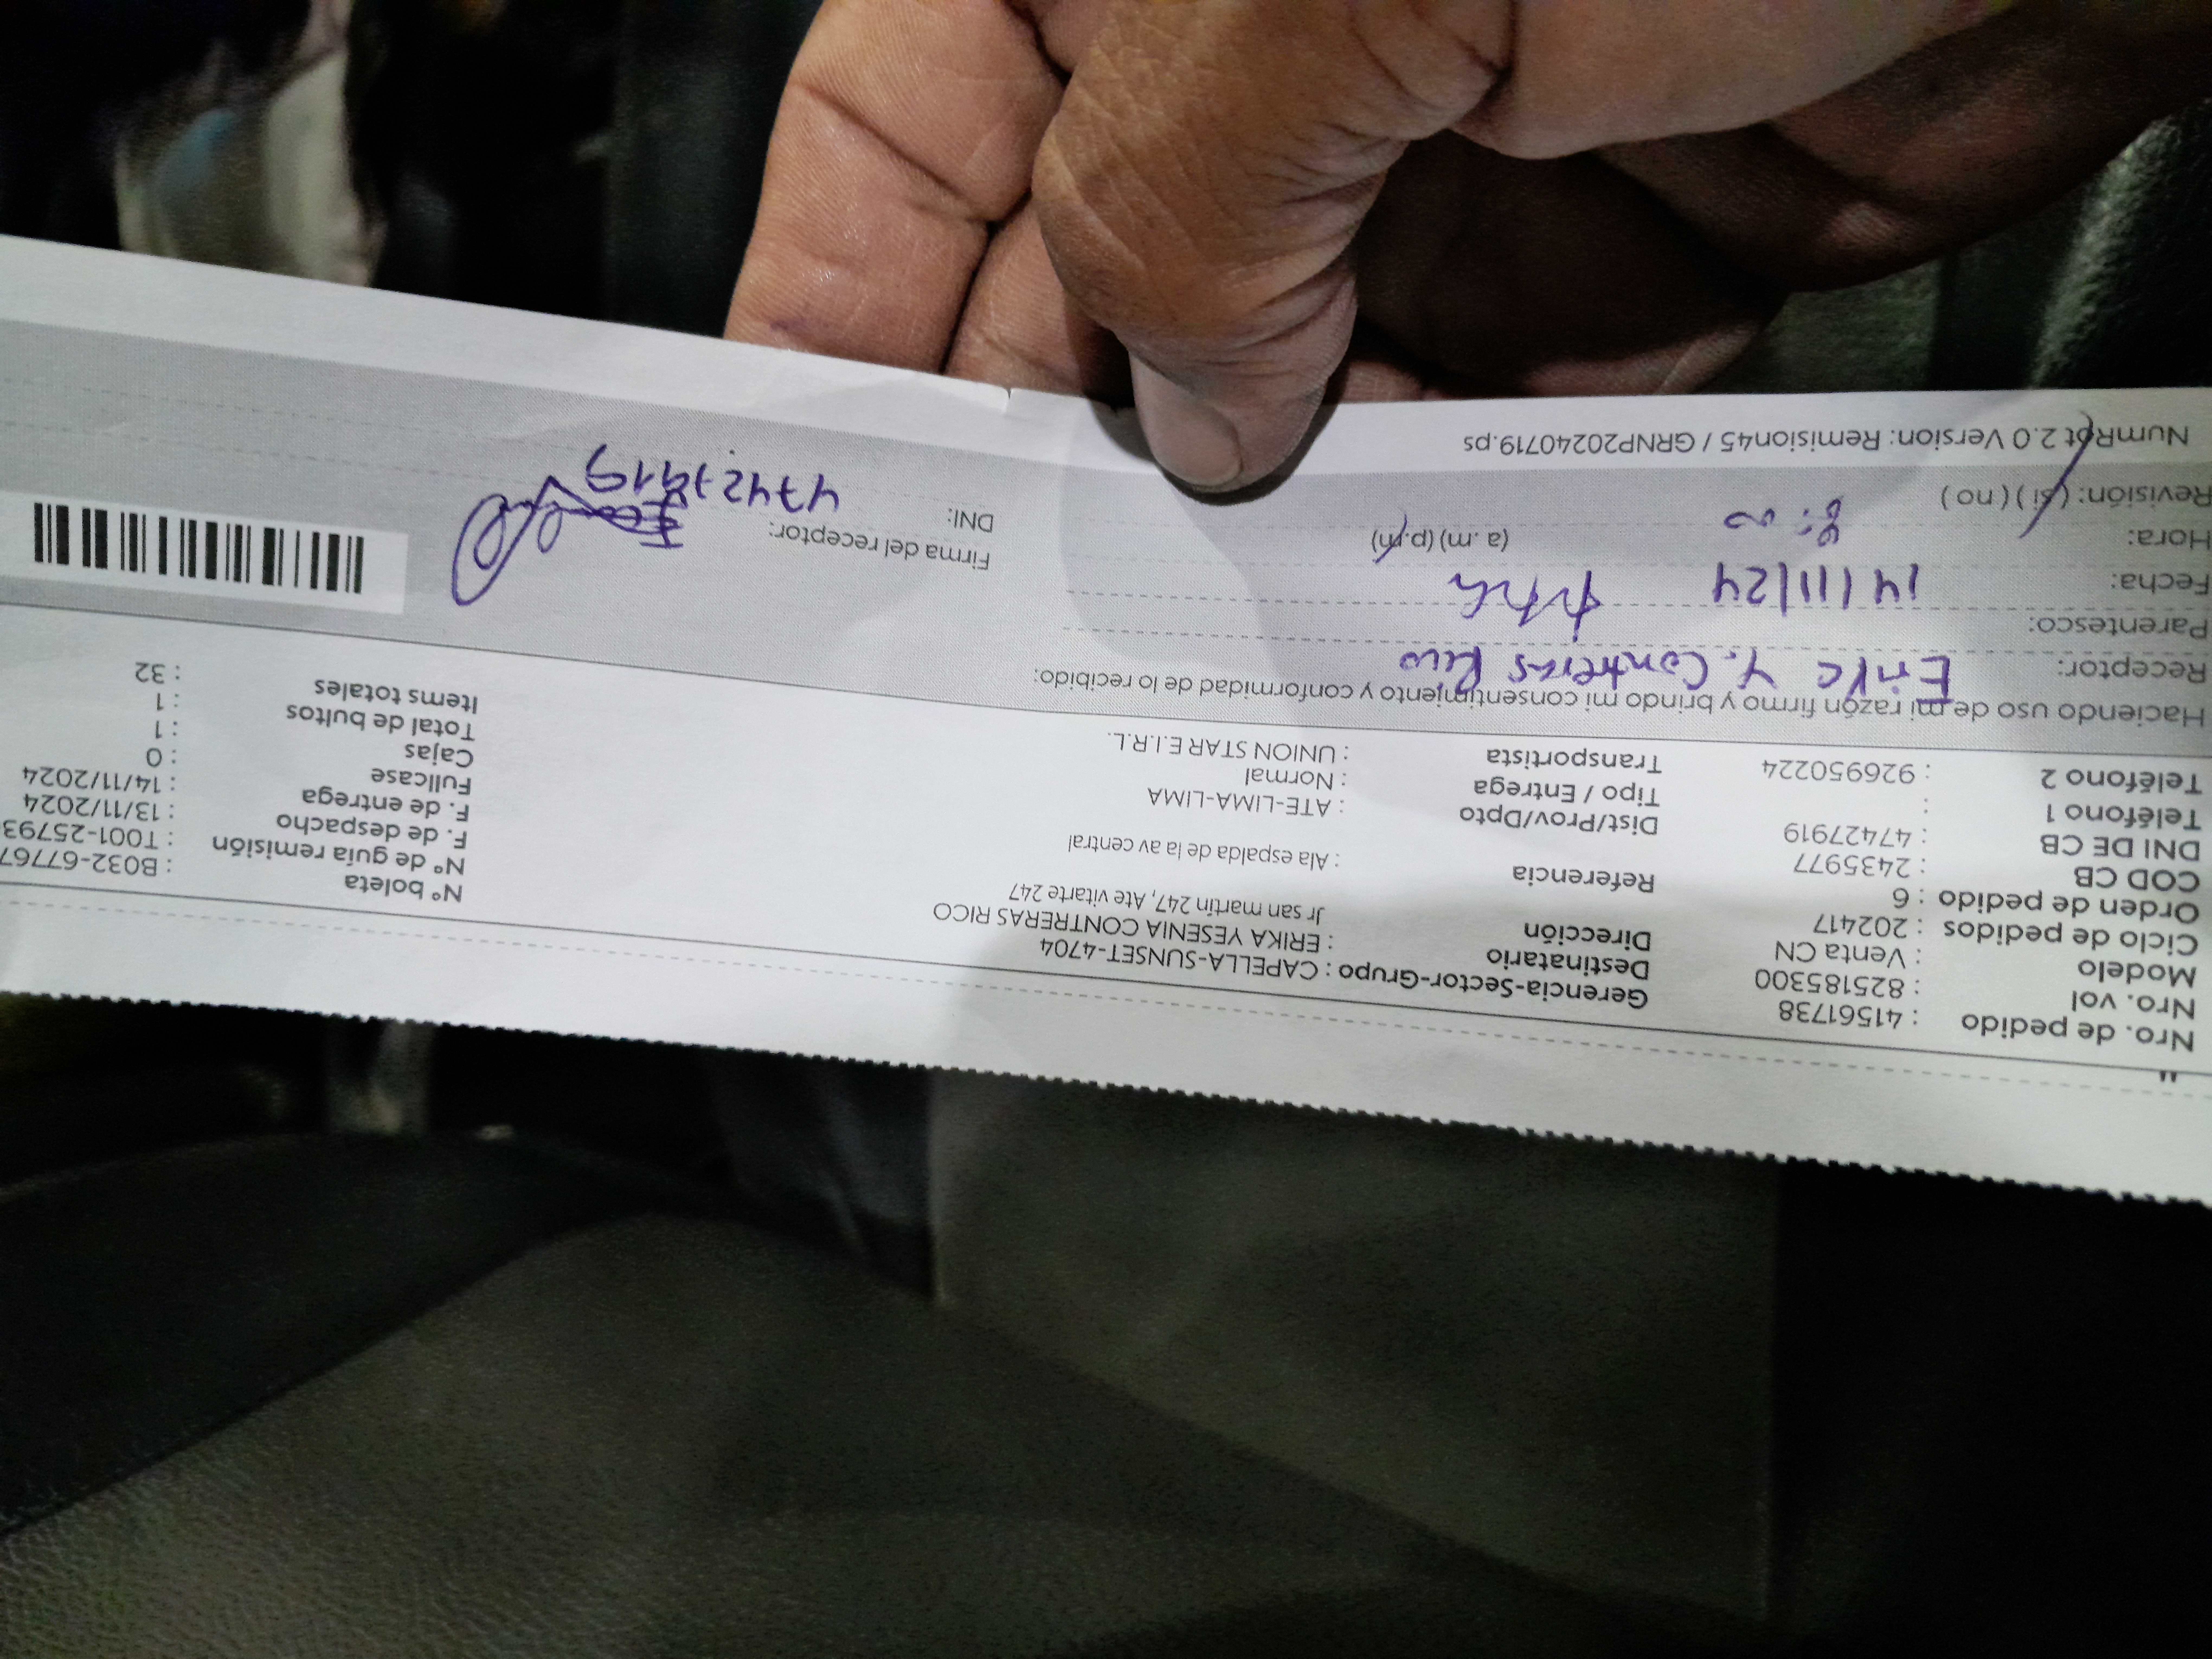 Nro. de pedido : 41561738 Gerencia-Sector-Grupo : CAPELLA-SUNSET-4704 Nº boleta : B032-67767
Nro. vol : 825185300 Destinatario : ERIKA YESENIA CONTRERAS RICO Nº de guía remisión : T001-25793
Modelo : Venta CN Dirección Jr san martin 247, Ate vitarte 247 F. de despacho : 13/11/2024
Ciclo de pedidos : 202417 F. de entrega : 14/11/2024
Orden de pedido : 6 Referencia : Ala espalda de la av central Fullcase : 0
COD CB : 2435977 Cajas : 1
DNI DE CB : 47427919 Dist/Prov/Dpto : ATE-LIMA-LIMA Total de bultos : 1
Teléfono 1 : Tipo / Entrega : Normal Items totales : 32
Teléfono 2 : 926950224 Transportista : UNION STAR E.I.R.L.
Haciendo uso de mi razón firmo y brindo mi consentimiento y conformidad de lo recibido:
Receptor: Y. Contreras Rico
Parentesco:
Fecha: 14/11/24 Firma del receptor:
Hora: 8:00 (a.m) (p.m) DNI: 47427919
Revisión: (si) (no)
NumRpt 2.0 Version: Remision45 / GRNP20240719.ps